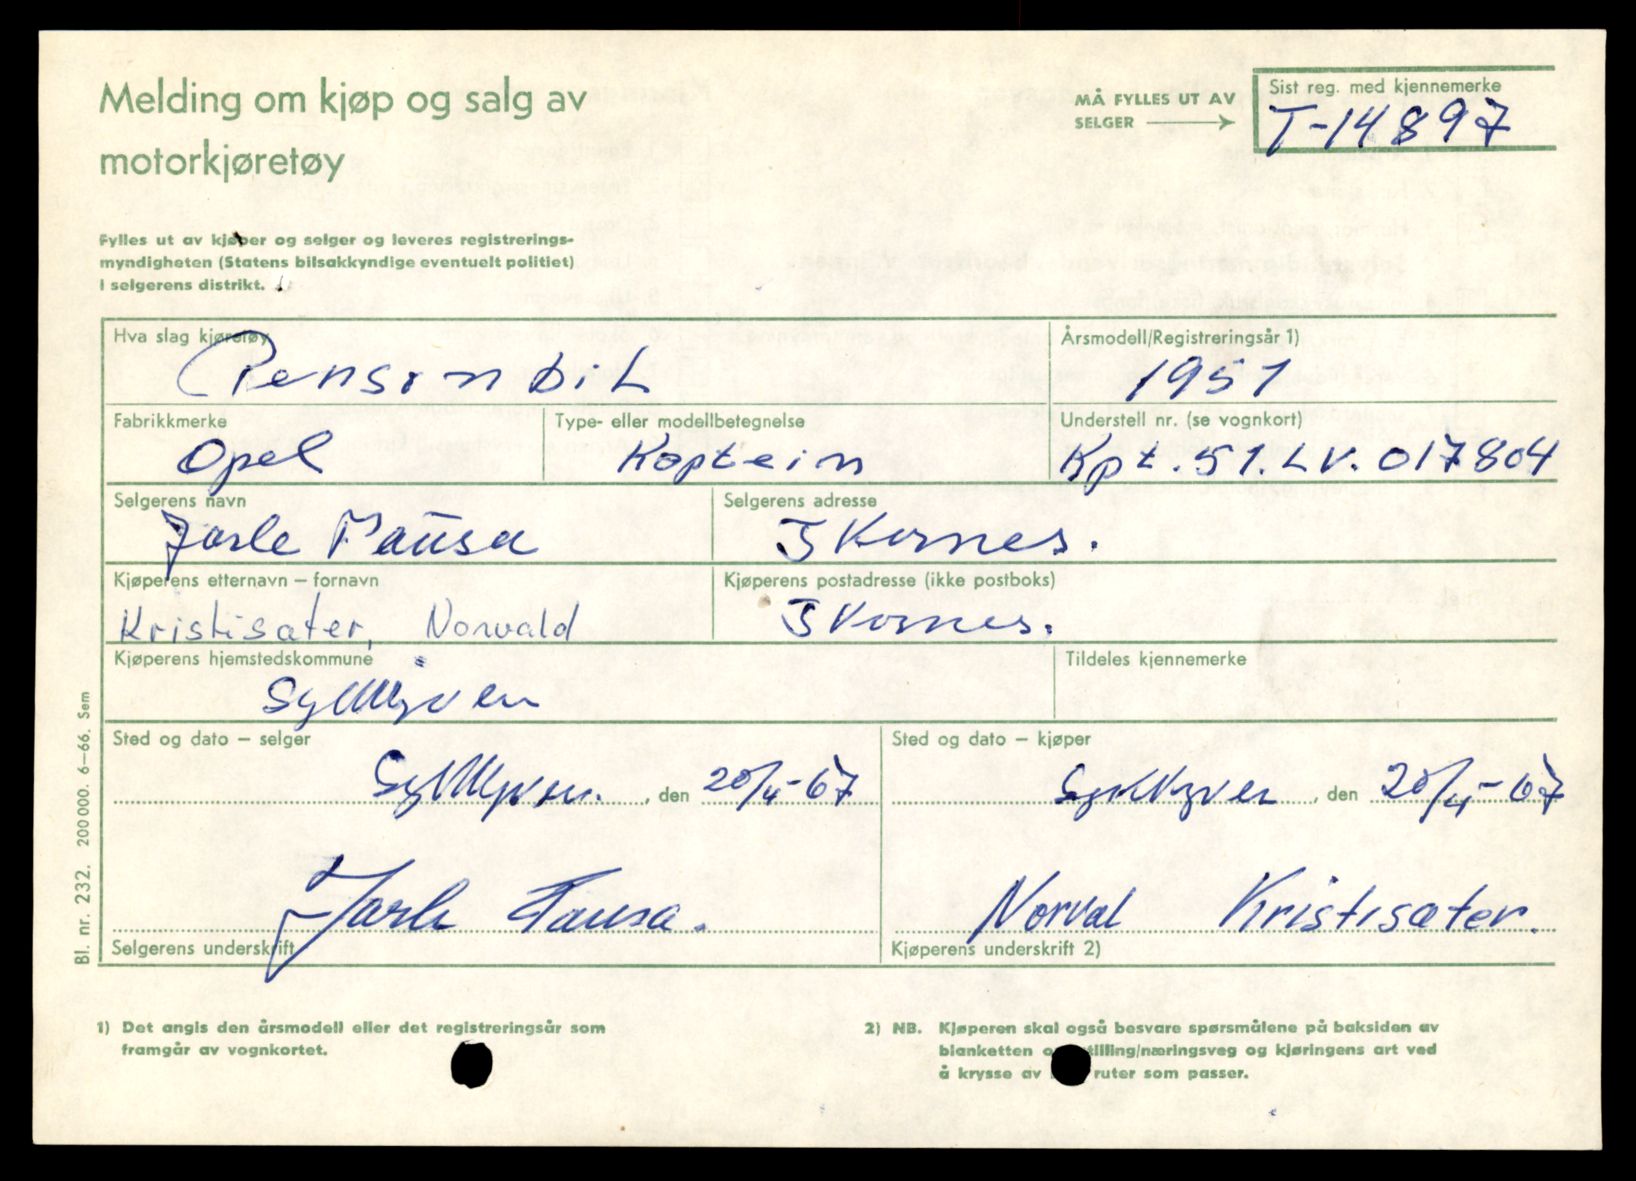 Melding om kjøp og salg av
motorkjøretøy
MÅ FYLLES UT AV
SELGER
Sist reg. med kjennemerke
T-14897
Fylles ut av kjøper og selger og leveres registrerings-
myndigheten (Statens bilsakkyndige eventuelt politiet)
i selgerens distrikt.
Hva slag kjøretøy
Personbil
Årsmodell/Registreringsår 1)
1951
Fabrikkmerke
Opel
Type- eller modellbetegnelse
Kaptein
Understell nr. (se vognkort)
Kpt.51.LV.017804
Selgerens navn
Jarle Pausa
Selgerens adresse
Ikornes.
Kjøperens etternavn – fornavn
Kristisæter, Norvald
Kjøperens postadresse (ikke postboks)
Ikornes.
Kjøperens hjemstedskommune
Sykkylven
Tildeles kjennemerke
Sted og dato – selger
Sykkylven. , den 20/4-67
Sted og dato – kjøper
Sykkylven , den 20/4-67
Jarle Pausa.
Selgerens underskrift
Norval Kristisæter.
Kjøperens underskrift 2)
Bl. nr. 232. 200 000. 6–66. Sem
1) Det angis den årsmodell eller det registreringsår som
framgår av vognkortet.
2) NB. Kjøperen skal også besvare spørsmålene på baksiden av
blanketten stilling/næringsveg og kjøringens art ved
å krysse av ruter som passer.